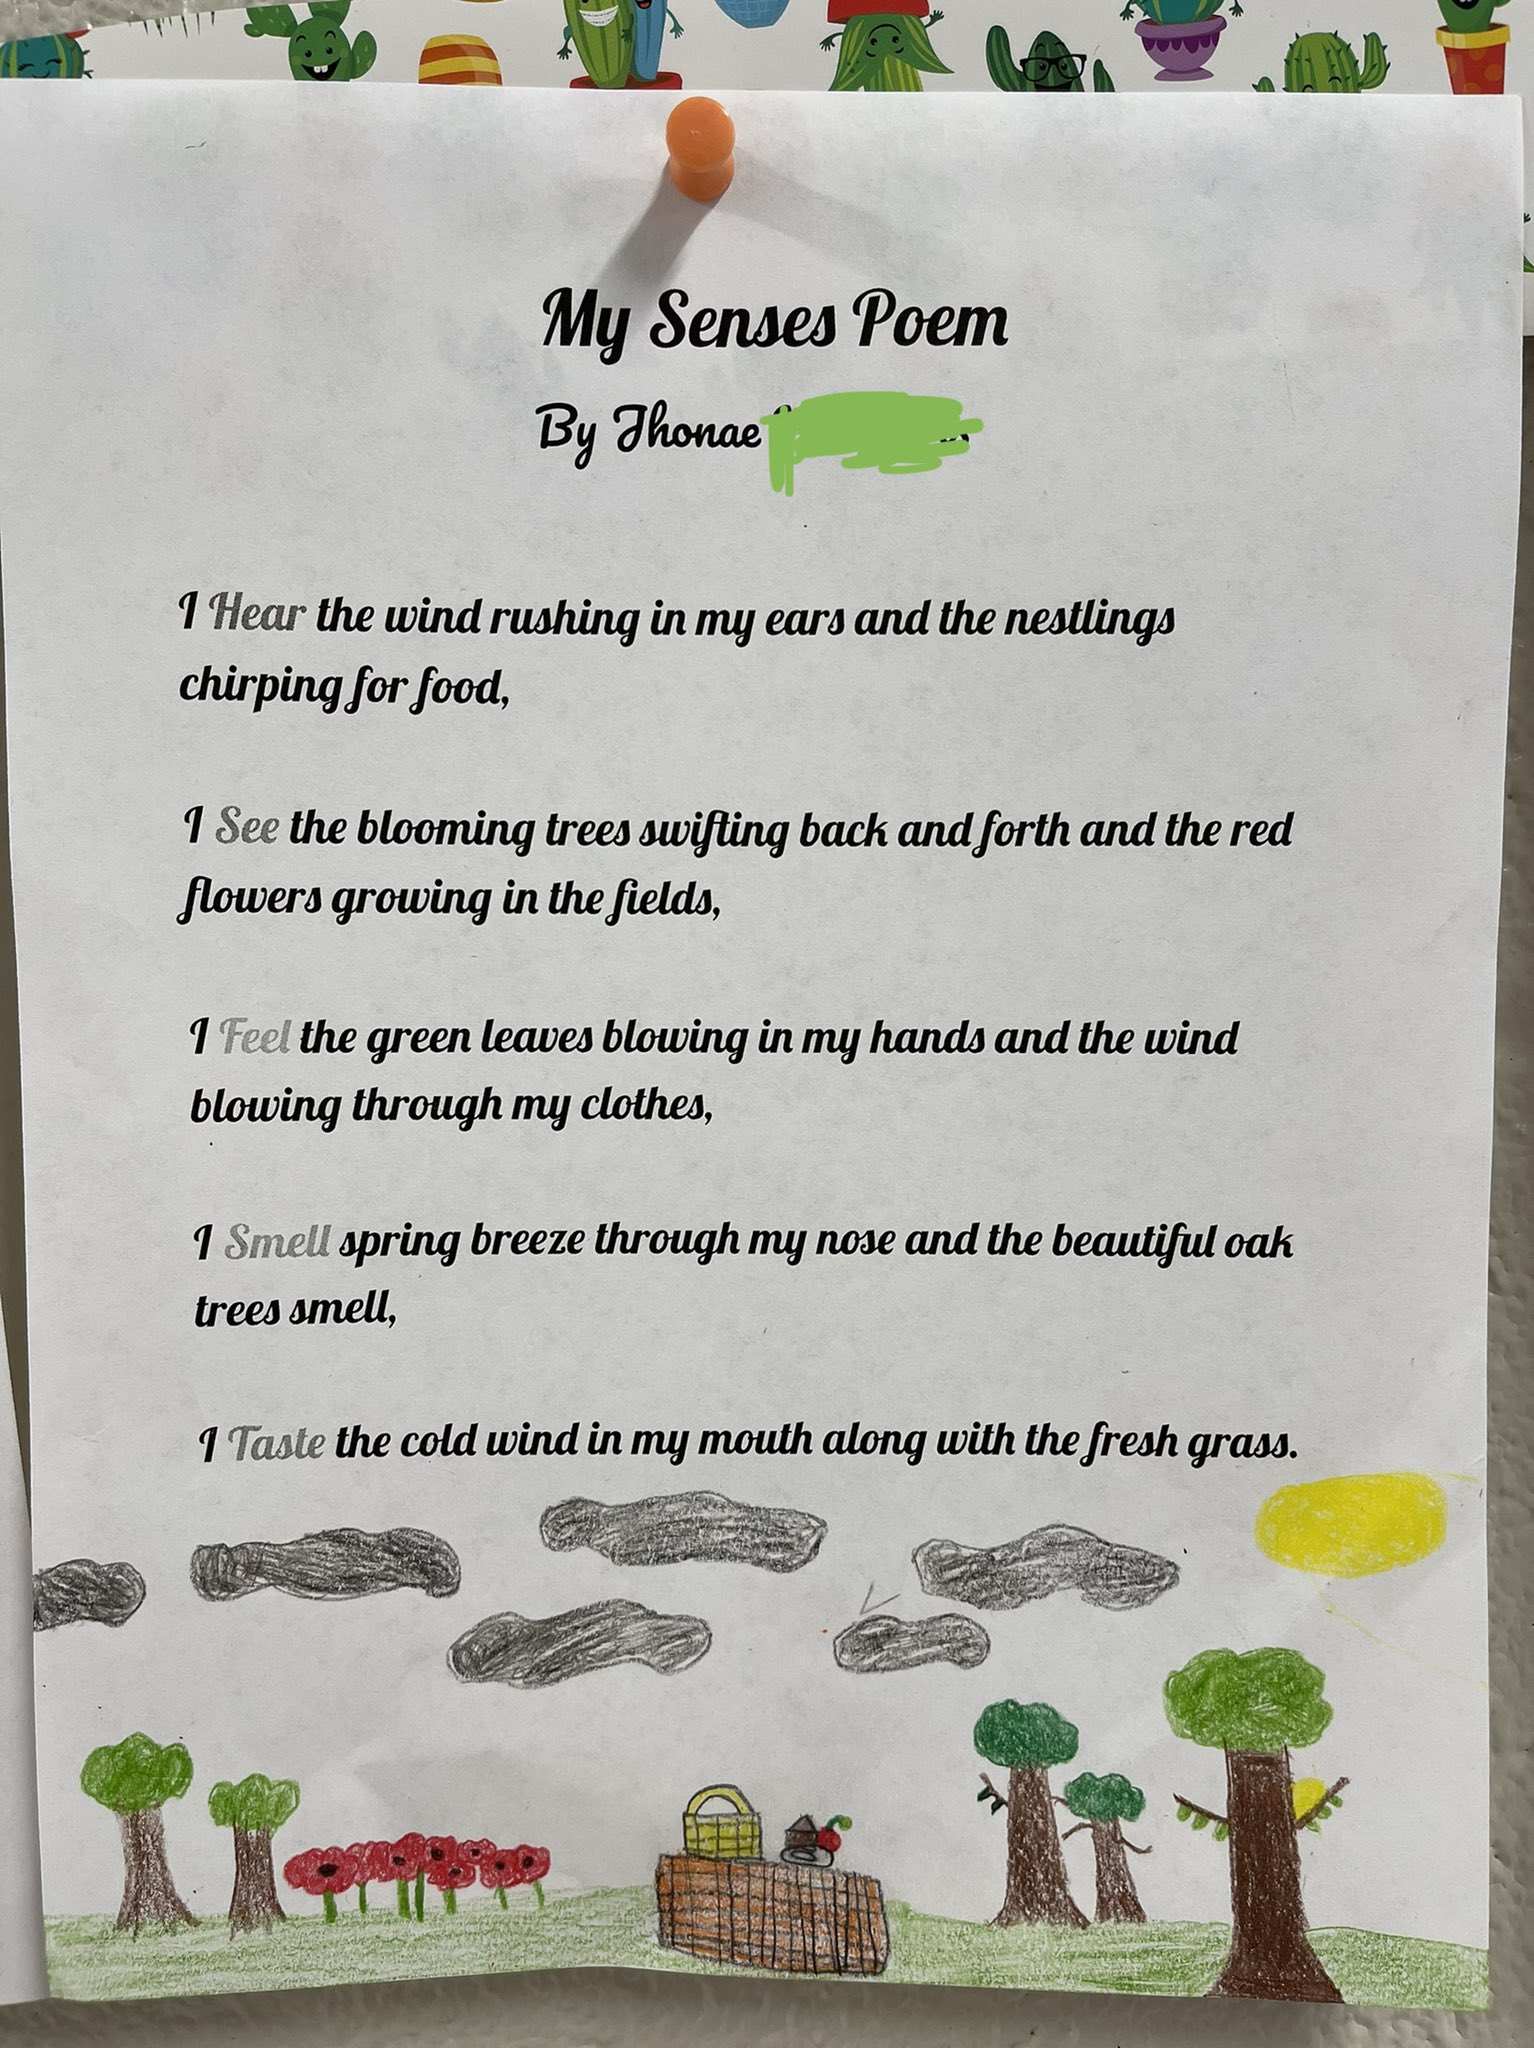 My Senses Poem
By Jhonae
I Hear the wind rushing in my ears and the nestlings
chirping for food,
I See the blooming trees swifting back and forth and the red
flowers growing in the fields,
I Feel the green leaves blowing in my hands and the wind
blowing through my clothes,
I Smell spring breeze through my nose and the beautiful oak
trees smell,
I Taste the cold wind in my mouth along with the fresh grass.